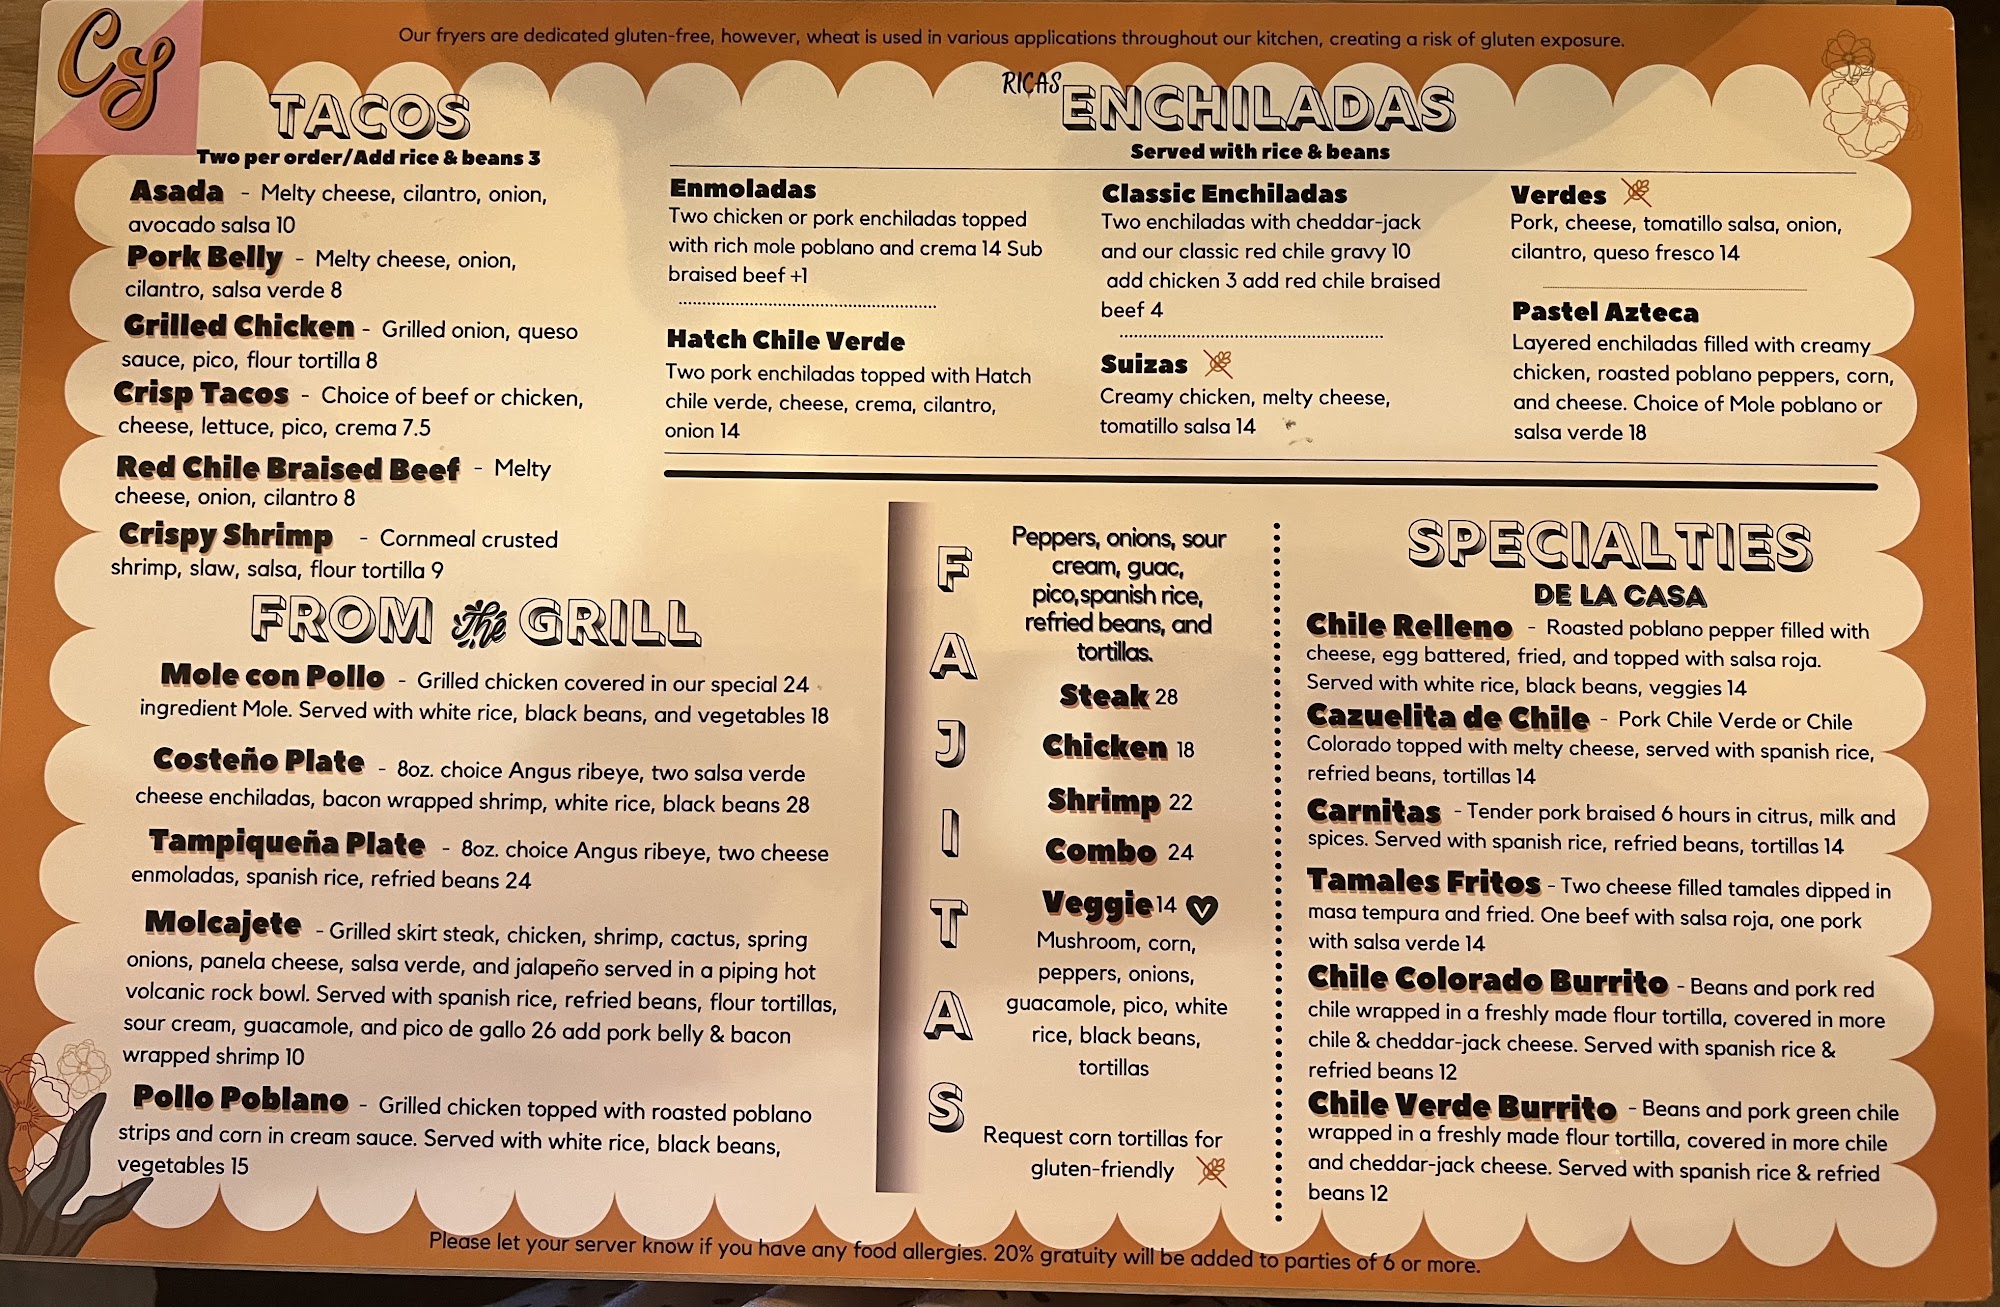 Cy
Our fryers are dedicated gluten-free, however, wheat is used in various applications throughout our kitchen, creating a risk of gluten exposure.
TACOS
Two per order/Add rice & beans 3
Asada - Melty cheese, cilantro, onion,
avocado salsa 10
Pork Belly - Melty cheese, onion,
cilantro, salsa verde 8
Grilled Chicken - Grilled onion, queso
sauce, pico, flour tortilla 8
Crisp Tacos - Choice of beef or chicken,
cheese, lettuce, pico, crema 7.5
Red Chile Braised Beef - Melty
cheese, onion, cilantro 8
Crispy Shrimp - Cornmeal crusted
shrimp, slaw, salsa, flour tortilla 9
RICAS ENCHILADAS
Served with rice & beans
Enmoladas
Two chicken or pork enchiladas topped
with rich mole poblano and crema 14 Sub
braised beef +1
Hatch Chile Verde
Two pork enchiladas topped with Hatch
chile verde, cheese, crema, cilantro,
onion 14
Classic Enchiladas
Two enchiladas with cheddar-jack
and our classic red chile gravy 10
add chicken 3 add red chile braised
beef 4
Suizas
Creamy chicken, melty cheese,
tomatillo salsa 14
Verdes
Pork, cheese, tomatillo salsa, onion,
cilantro, queso fresco 14
Pastel Azteca
Layered enchiladas filled with creamy
chicken, roasted poblano peppers, corn,
and cheese. Choice of Mole poblano or
salsa verde 18
FROM the GRILL
Mole con Pollo - Grilled chicken covered in our special 24
ingredient Mole. Served with white rice, black beans, and vegetables 18
Costeño Plate - 8oz. choice Angus ribeye, two salsa verde
cheese enchiladas, bacon wrapped shrimp, white rice, black beans 28
Tampiqueña Plate - 8oz. choice Angus ribeye, two cheese
enmoladas, spanish rice, refried beans 24
Molcajete - Grilled skirt steak, chicken, shrimp, cactus, spring
onions, panela cheese, salsa verde, and jalapeño served in a piping hot
volcanic rock bowl. Served with spanish rice, refried beans, flour tortillas,
sour cream, guacamole, and pico de gallo 26 add pork belly & bacon
wrapped shrimp 10
Pollo Poblano - Grilled chicken topped with roasted poblano
strips and corn in cream sauce. Served with white rice, black beans,
vegetables 15
FAJITAS
Peppers, onions, sour
cream, guac,
pico,spanish rice,
refried beans, and
tortillas.
Steak 28
Chicken 18
Shrimp 22
Combo 24
Veggie 14 V
Mushroom, corn,
peppers, onions,
guacamole, pico, white
rice, black beans,
tortillas
Request corn tortillas for
gluten-friendly
SPECIALTIES
DE LA CASA
Chile Relleno - Roasted poblano pepper filled with
cheese, egg battered, fried, and topped with salsa roja.
Served with white rice, black beans, veggies 14
Cazuelita de Chile - Pork Chile Verde or Chile
Colorado topped with melty cheese, served with spanish rice,
refried beans, tortillas 14
Carnitas - Tender pork braised 6 hours in citrus, milk and
spices. Served with spanish rice, refried beans, tortillas 14
Tamales Fritos - Two cheese filled tamales dipped in
masa tempura and fried. One beef with salsa roja, one pork
with salsa verde 14
Chile Colorado Burrito - Beans and pork red
chile wrapped in a freshly made flour tortilla, covered in more
chile & cheddar-jack cheese. Served with spanish rice &
refried beans 12
Chile Verde Burrito - Beans and pork green chile
wrapped in a freshly made flour tortilla, covered in more chile
and cheddar-jack cheese. Served with spanish rice & refried
beans 12
Please let your server know if you have any food allergies. 20% gratuity will be added to parties of 6 or more.